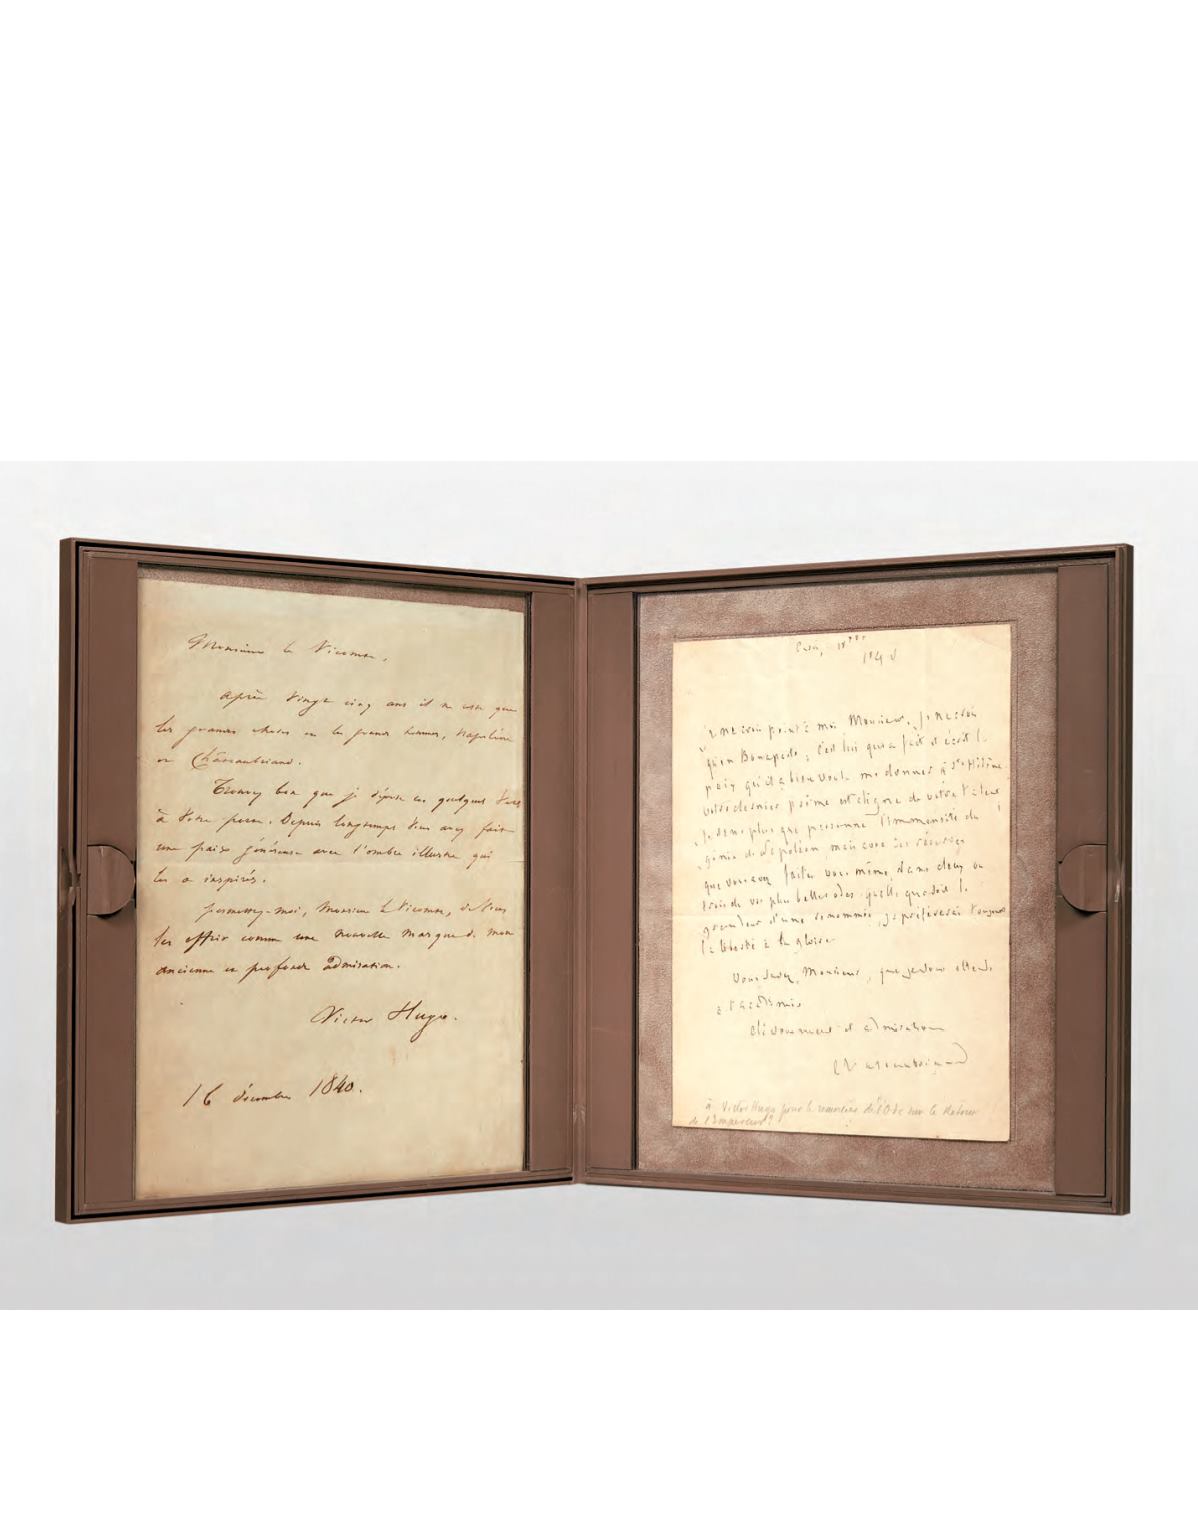 Monsieur le Vicomte,
après vingt cinq ans il ne reste que
les grandes choses et les grands hommes, Napoléon
et Châteaubriand.
Trouvez bon que je dépose ces quelques vers
à votre porte. Depuis longtemps vous avez fait
une paix généreuse avec l'ombre illustre qui
les a inspirés.
permettez-moi, Monsieur le Vicomte, de vous
les offrir comme une nouvelle marque de mon
ancienne et profonde admiration.
Victor Hugo.
16 décembre 1840.
Paris, 18
1840
Je ne crois point à moi Monsieur, je ne crois
qu'en Bonaparte; c'est lui qui a fait et écrit la
paix qu'il a bien voulu me donner à Ste Hélène
votre dernier poème est digne de votre talent
Je sens plus que personne l'immensité du
génie de Napoléon mais avec les réserves
que vous avez faites vous même, dans deux ou
trois de vos plus belles odes quelle que soit la
grandeur d'une renommée, je préférerai toujours
la liberté à la gloire
Vous savez, Monsieur, que je vous attends
à l'académie
dévouement et admiration
Chateaubriand
à Victor Hugo pour le remercier de l'Ode sur le Retour
de l'Empereur?